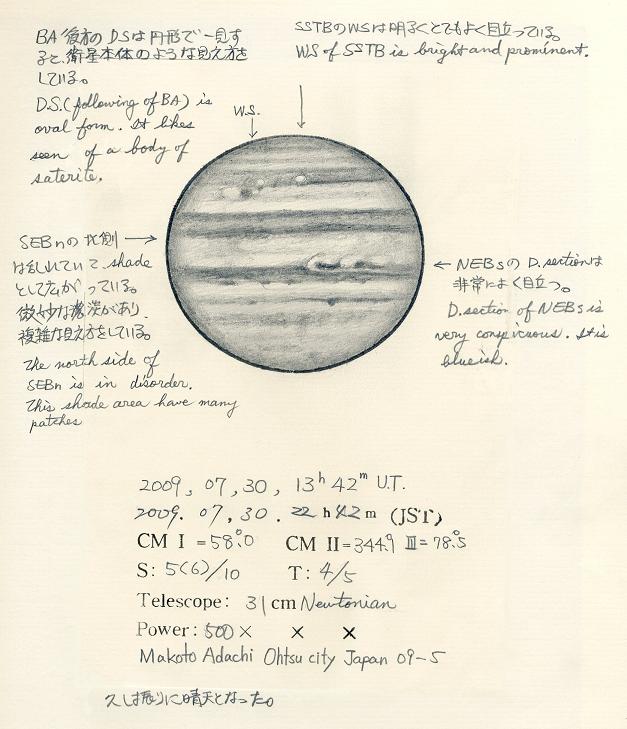 BA後方のDSは円形で一見す
ると、衛星本体のような見え方を
している。
D.S.(following of BA) is
oval form. It likes
seen of a body of
saterite.
SSTBのWSは明るくとてもよく目立っている。
WS of SSTB is bright and prominent.
W.S.
SEBnの北側
は乱れていて、shade
として広がっている。
微妙な濃淡があり、
複雑な見え方をしている。
The north side of
SEBn is in disorder.
This shade area have many
patches
NEBsのD.sectionは
非常によく目立つ。
D.section of NEBs is
very conspicuous. It is
blueish.
2009, 07, 30, 13h 42m U.T.
2009. 07, 30. 22 h 42 m (JST)
CM I =58.°0 CM II=344.°9 III=78.°5
S: 5(6)/10 T: 4/5
Telescope: 31cm Newtonian
Power: 500× × ×
Makoto Adachi Ohtsu city Japan 09-5
久し振りに晴天となった。